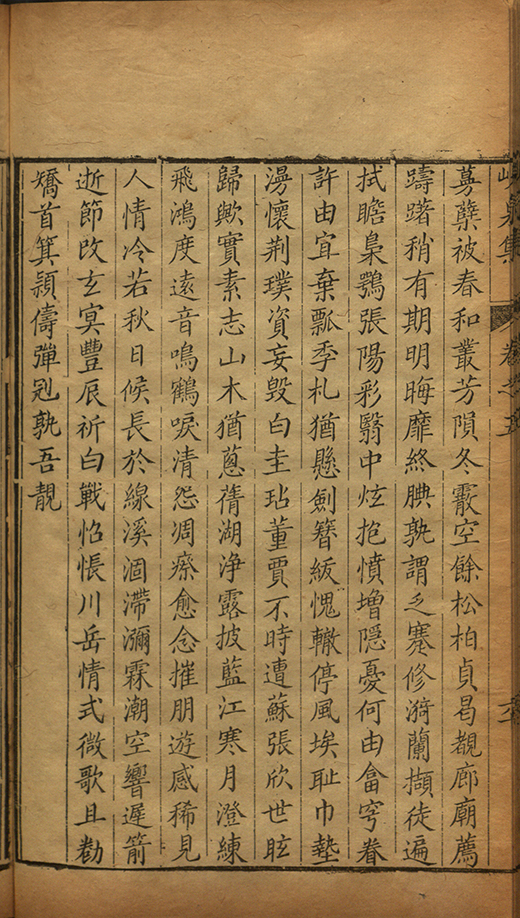 蕚蘖被春和叢芳隕冬霰空餘松柏貞曷覩廊廟薦
躊躇稍有期明晦靡終腆孰謂乏蹇修漪蘭擷徒遍
拭瞻梟鶚張陽彩翳中炫抱憤增隱憂何由畣穹眷
許由宜棄瓢季札猶懸劍簪紱愧轍停風埃耻巾墊
漫懷荆璞資妄毁白圭玷董賈不時遭蘇張欣世眩
歸歟實素志山木猶蔥蒨湖浄露披藍江寒月澄練
飛鴻度遠音鳴鶴唳清怨凋瘵愈念摧朋遊感稀見
人情冷若秋日候長於線溪涸滯瀰霖潮空響遲箭
逝節改玄冥豐辰祈白戰怊悵川岳情式微歌且勸
矯首箕潁儔彈冠孰吾靚